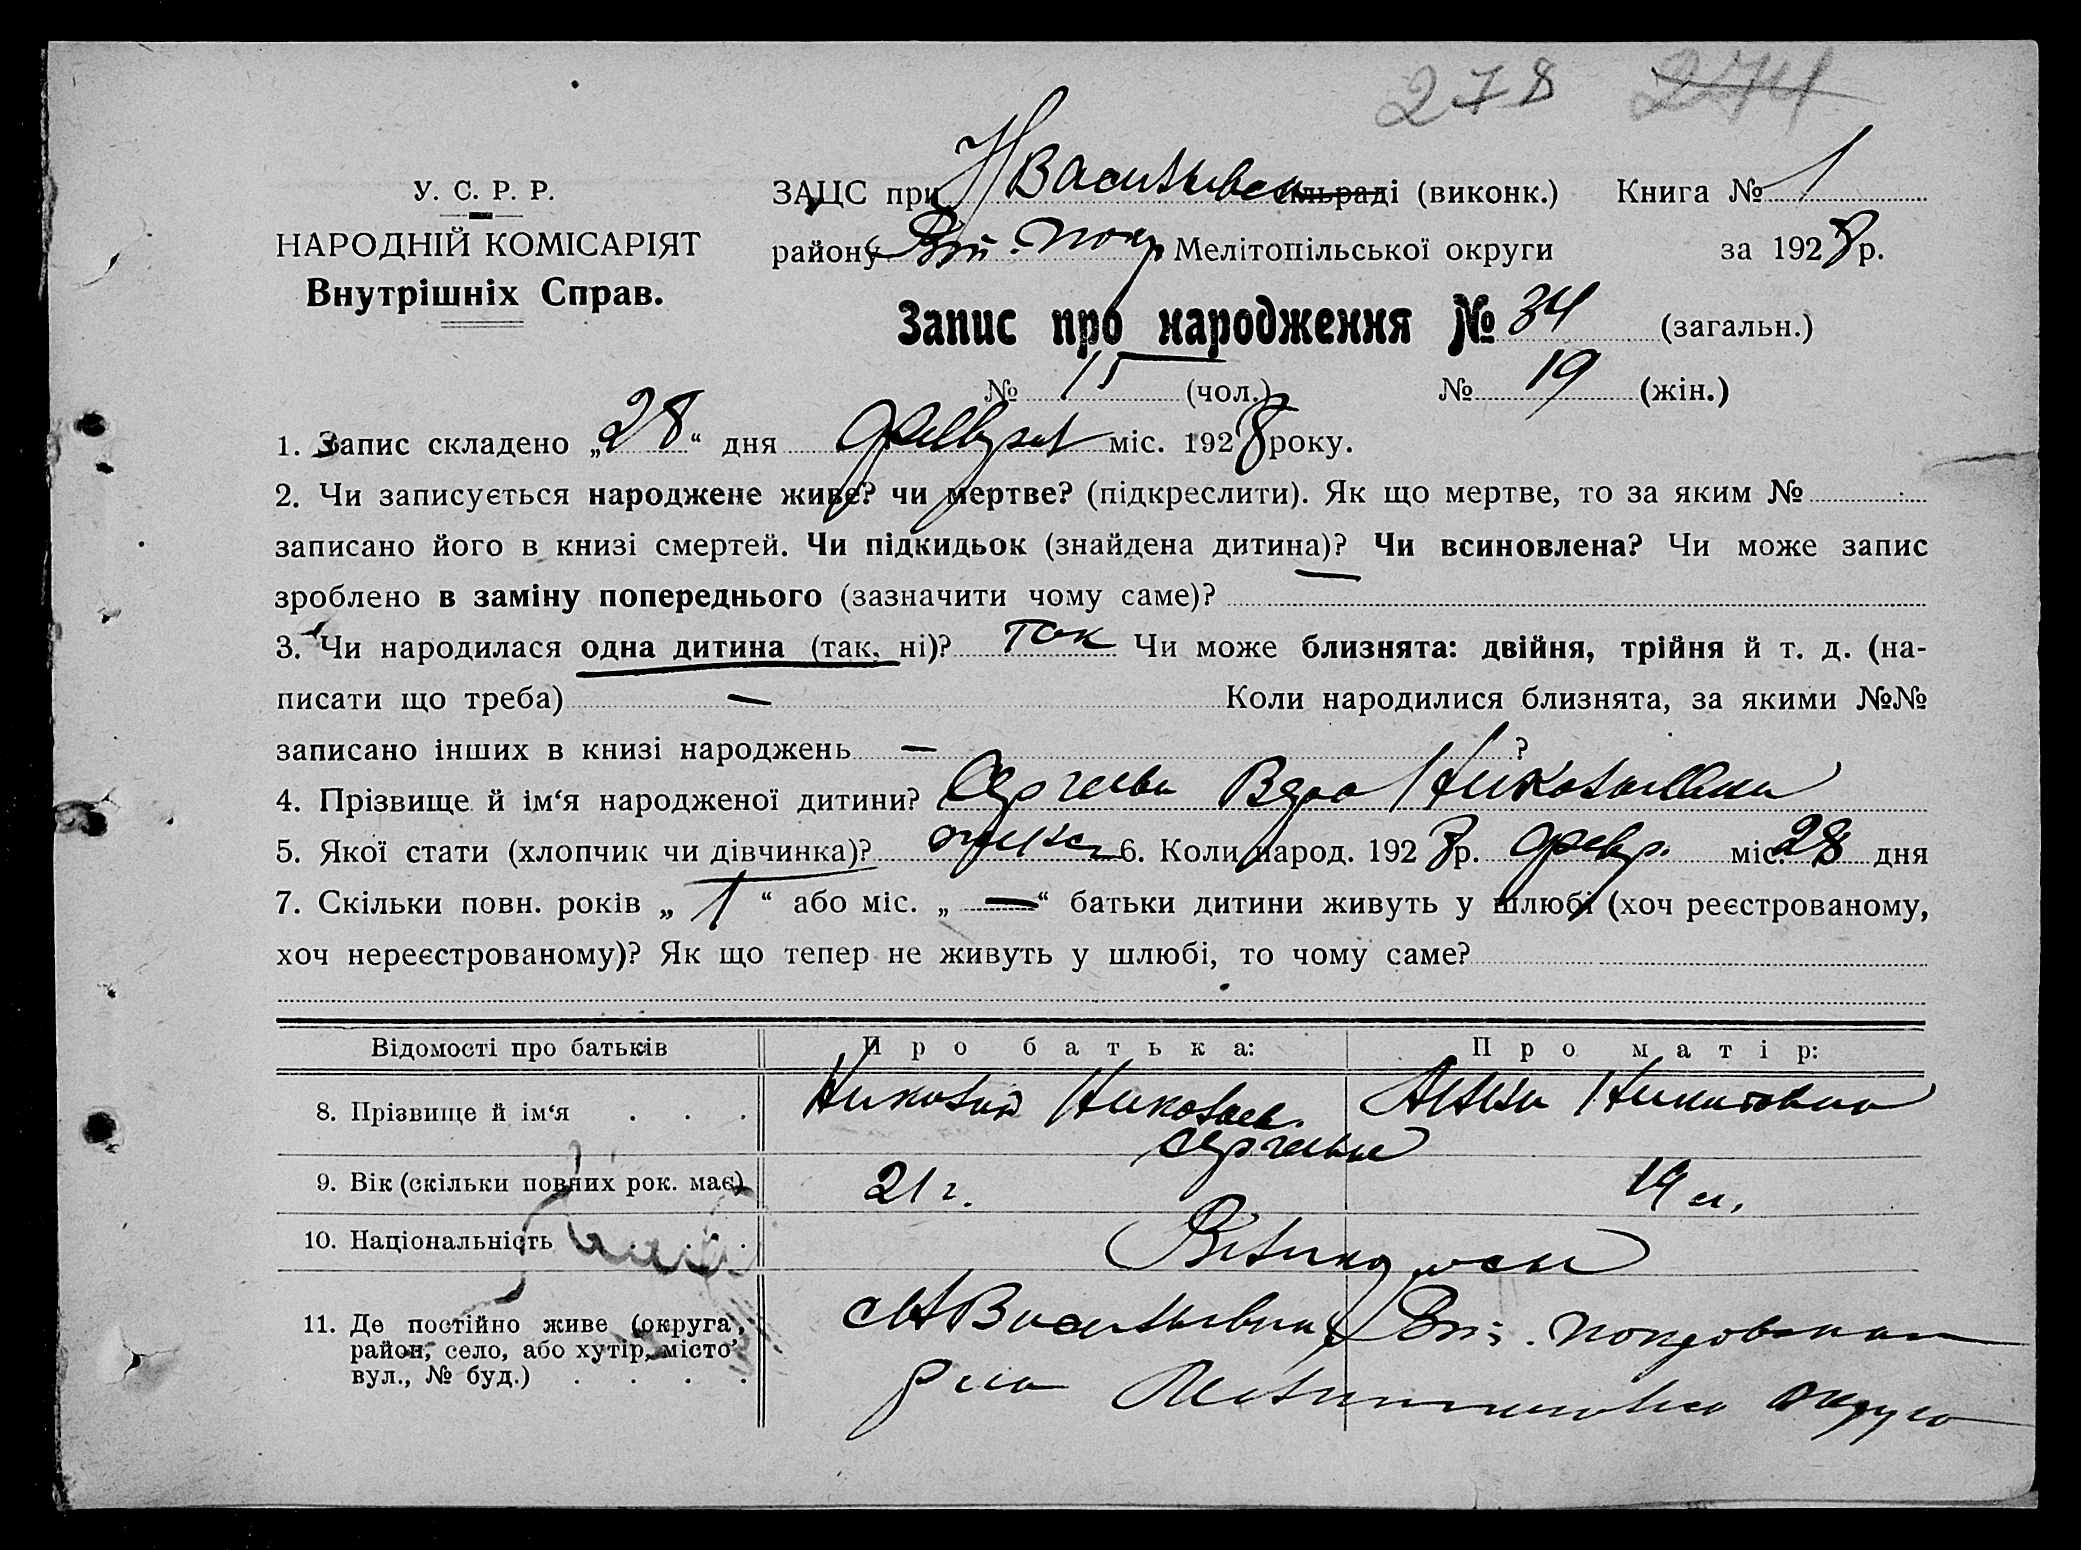 278 274
У. С. Р. Р.
НАРОДНІЙ КОМІСАРІЯТ
Внутрішніх Справ.
ЗАЦС при НВасильевск сільраді (виконк.) Книга № 1
району Вел. Покр Мелітопільської округи за 1928 р.
Запис про народження № 34 (загальн.)
№ 15 (чол.) № 19 (жін.)
1. Запис складено „28“ дня міс. 1928 року.
2. Чи записується народжене живе? чи мертве? (підкреслити). Як що мертве, то за яким №
записано його в книзі смертей. Чи підкидьок (знайдена дитина)? Чи всиновлена? Чи може запис
зроблено в заміну попереднього (зазначити чому саме)?
3. Чи народилася одна дитина (так, ні)? так Чи може близнята: двійня, трійня й т. д. (на-
писати що треба) — Коли народилися близнята, за якими №№
записано інших в книзі народжень — ?
4. Прізвище й ім‘я народженої дитини? Сергеева Вера Николаевна
5. Якої стати (хлопчик чи дівчинка)? 6. Коли народ. 1928 р. февр. міс. 28 дня
7. Скільки повн. років „ 1 “ або міс. „ — “ батьки дитини живуть у шлюбі (хоч реєстрованому,
хоч нереєстрованому)? Як що тепер не живуть у шлюбі, то чому саме?
Відомості про батьків Про батька: Про матір:
8. Прізвище й ім‘я . . . Николай Николаев. Никитовна
Сергеевы
9. Вік (скільки повних рок. має) 21 г. 19 л.
10. Національність . . .
11. Де постійно живе (округа, район, село, або хутір, місто вул., № буд.) . . . . с НВасильевка Вел. Покровского
р-на Мелитопольско округа